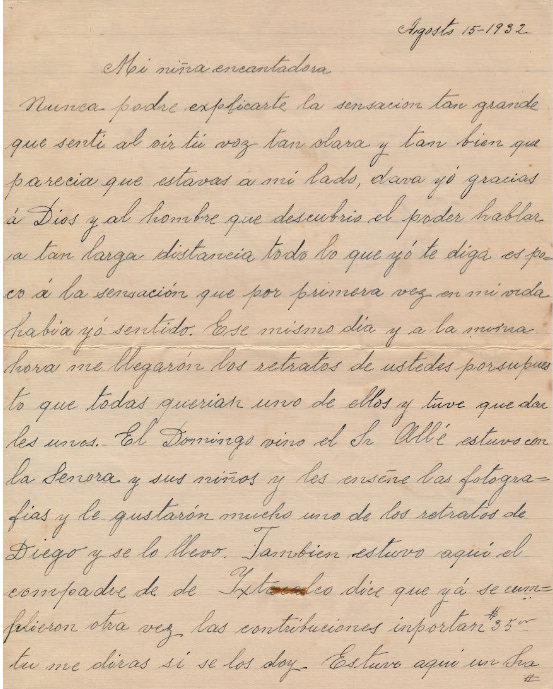 Agosto 15-1932
Mi niña encantadora
Nunca podre explicarte la sensacion tan grande
que senti al oir tú voz tan clara y tan bien que
parecia que estavas a mi lado, dava yó gracias
á Dios y al hombre que descubrio el poder hablar
a tan larga distancia todo lo que yó te diga es po-
co á la sensación que por primera vez en mi vida
habia yó sentido. Ese mismo dia y a la misma
hora me llegarón los retratos de ustedes porsupues
to que todas querian uno de ellos y tuve que dar
les unos. El Domingo vino el Sr Allé estuvo con
la Señora y sus niños y les enseñe las fotogra-
fias y le gustarón mucho uno de los retratos de
Diego y se lo llevo. Tambien estuvo aqui el
compadre de de dice que yá se cum-
plieron otra vez las contribuciones inportan $35
tu me diras si se los doy. Estuvo aqui un